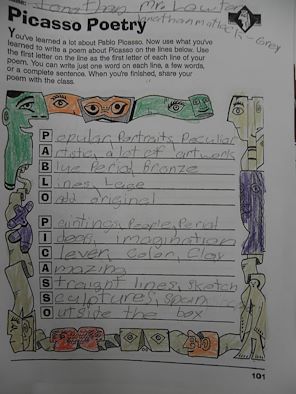 Jonathan Mr. Lawter
Jonathan
Picasso Poetry
You've learned a lot about Pablo Picasso. Now use what you've
learned to write a poem about Picasso on the lines below. Use
the first letter on the line as the first letter of each line of your
poem. You can write just one word on each line, a few words,
or a complete sentence. When you're finished, share your
poem with the class.
Popular, Portraits, Peculiar
Artistic, a lot of artworks
Blue Period Bronze
Lines, Large
Odd original
Paintings, People, Period
Ideas, imagination
Clever, Color, Clay
Amazing
Straight lines, Sketch
Sculptures, Spain
Outside the box
101